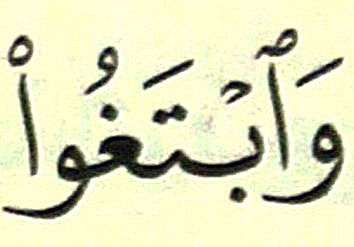 وَٱبْتَغُوا۟